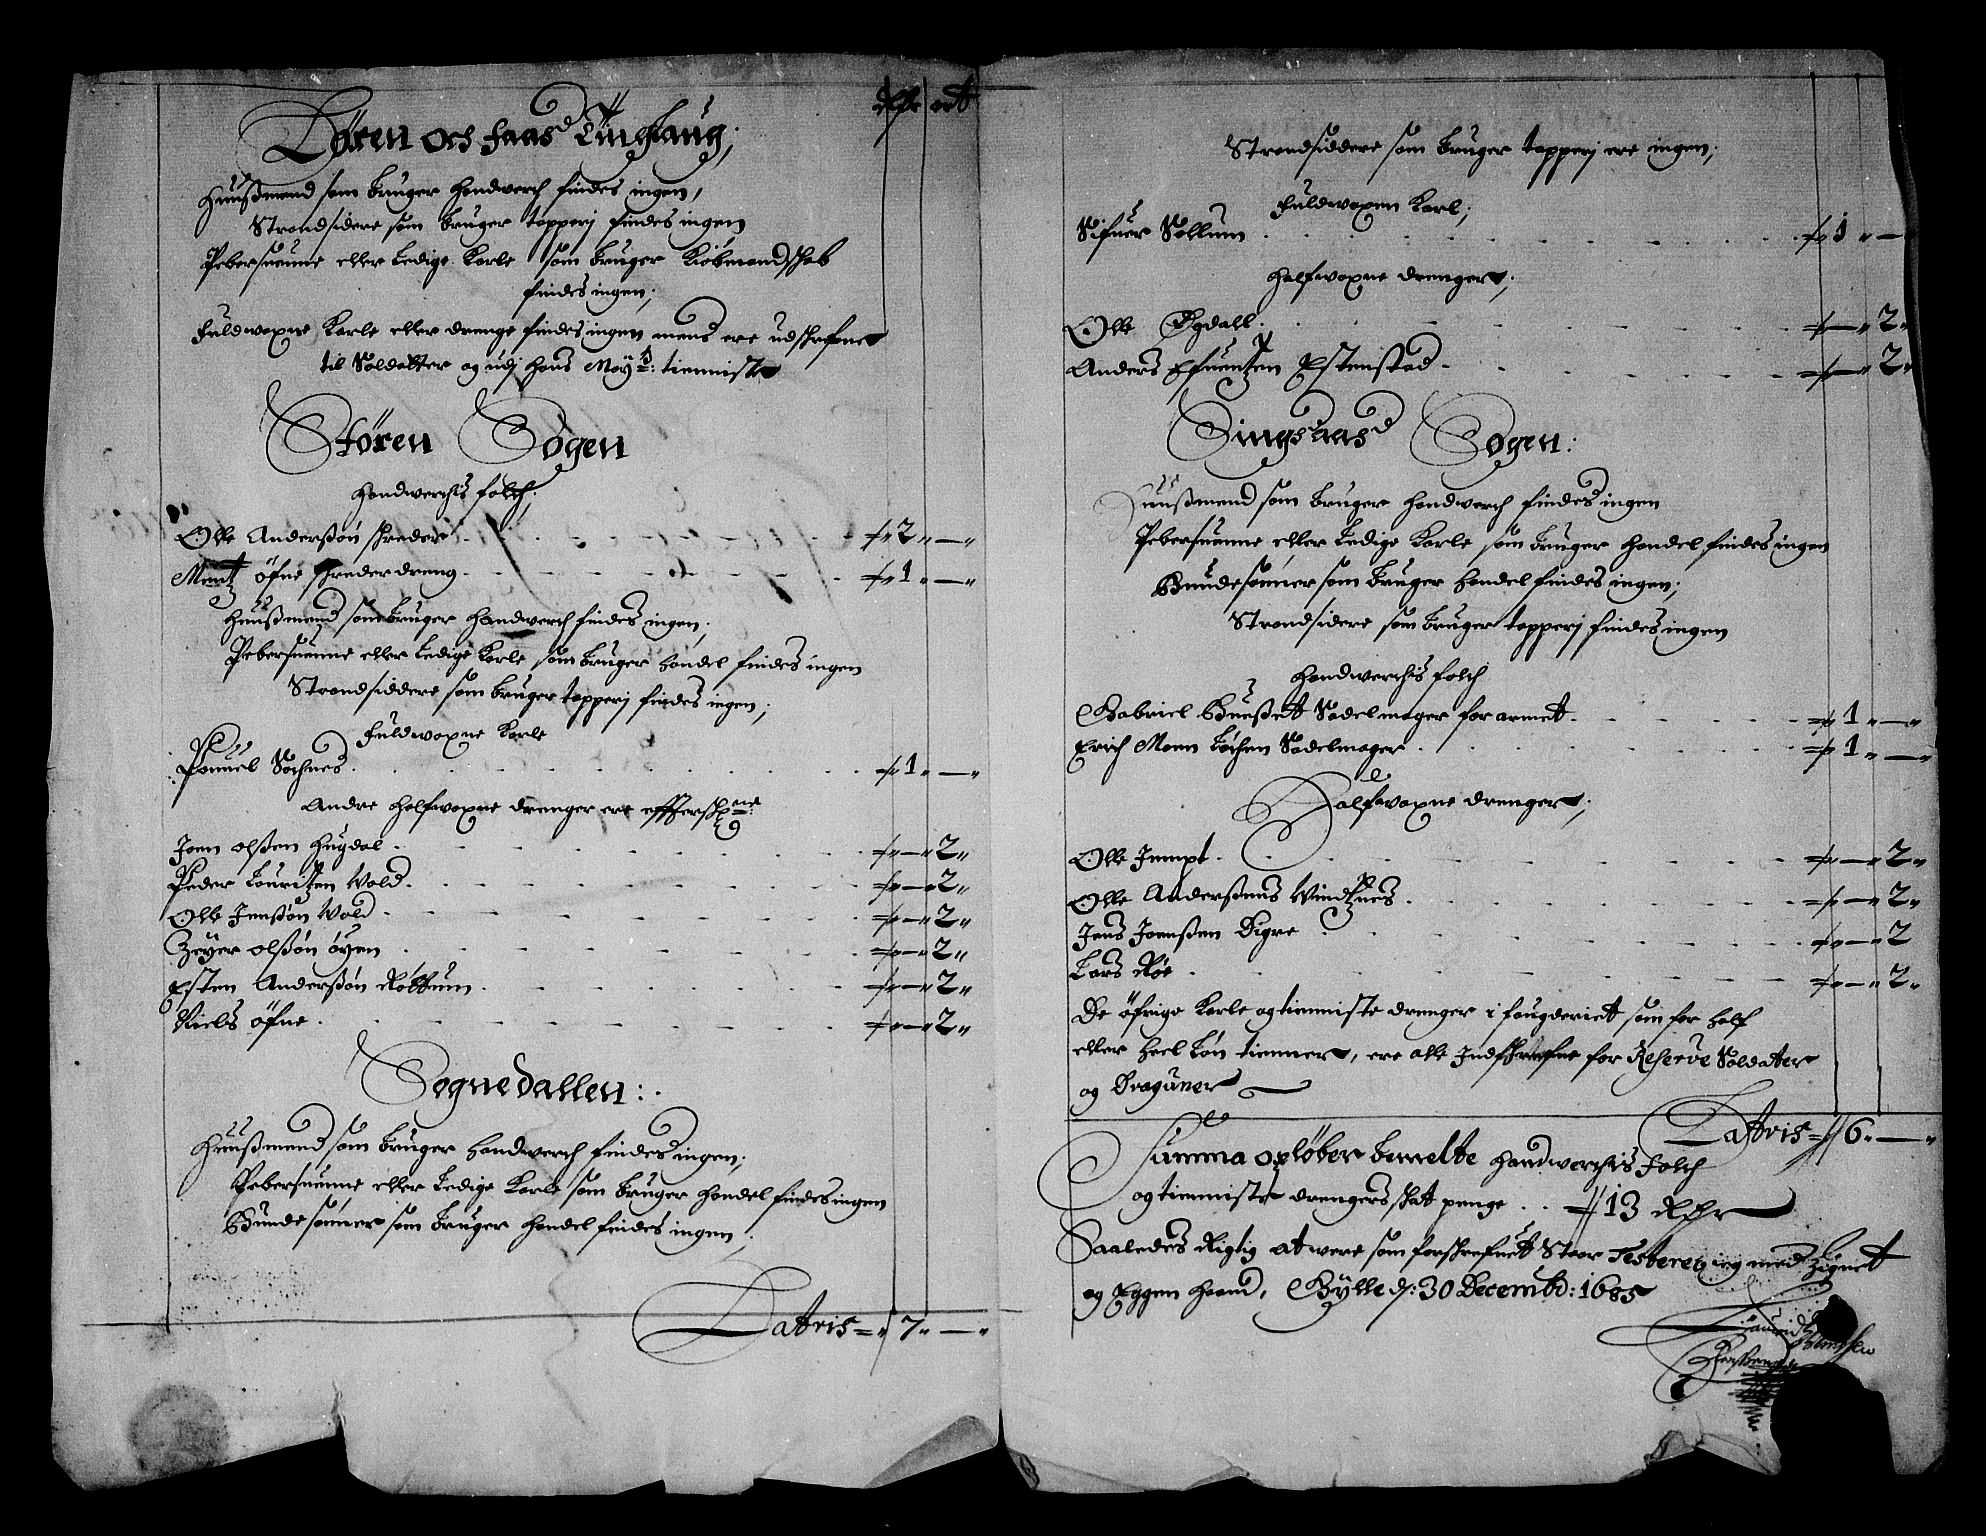 Støren och Haas Tinglaug; Rdlr ort
Huußmend som bruger Handwerch findes ingen,
Strandsidere som bruger tapperj findes ingen
Pebersuenne eller Ledige Karle som bruger Kiøbmandschab
findes ingen;
Fuldwoxne Karle eller drenge findes ingen mens ere udschrefne
til Soldatter og udj Hans Mayts: tienniste
Støren Sogen
Handwerchis folch;
Olle Anderßøn schreder 2 -
Mentz Øfne schreder dreng 1 -
Huußmend som bruger Handwerch findes ingen;
Pebersuenne eller Ledige Karle som bruger Handel findes ingen
Strandsiddere som bruger tapperj findes ingen;
Fuldwoxne Karle
Pouuel Sochnes 1 -
Andre Halfwoxne drenger ere
Joen olßen Hugdal - 2
Peder Louritzen Vold - 2
Olle Jenßøn Vold - 2
Zeyer olßøn øyen - 2
Esten Anderßøn Røttum - 2
Niels øfne - 2
Sognedallen:
Huußmend som bruger Handwerch findes ingen;
Pebersuenne eller Ledige Karle som bruger Handel findes ingen
Bunde sønner som bruger Handel findes ingen;
Latris 7 -
Strandsiddere som bruger tapperj ere ingen;
Fuldwoxen Karl;
Sifuer Sollum 1 -
Halfwoxne drenger;
Olle Øgdall - 2
Anders Efuentzen Østenstad - 2
Singsaas Sogen:
Huußmend som bruger Handwerch findes ingen
Pebersuenne eller Ledige Karle som bruger Handel findes ingen
Bunde sønner som bruger Handel findes ingen;
Strandsidere som bruger tapperj findes ingen
Handwerchis folch
Gabriel Sadelmager forarmet 1 -
Erich Moen Sadelmager 1 -
Halfwoxne drenger;
Olle Jempt - 2
Olle Anderßens Vindtznes - 2
Jens Joenßen Digre - 2
Lars Røe - 2
De øfrige Karle og tienniste drenger i fougderiet som for half
eller heel Løn tienner, ere alle Indschrefne for Reserve Soldater
og Draguner
Latris 6 -
Summa opløber bemelte Handwerchis Folch
og tienniste drengers schat penge 13 Rdlr
Saaledes Rigtig at were som forschrefuet Staar Testerer ieg med Zignet
og Eggen Haand, Bylle d: 30 Decembr: 1685